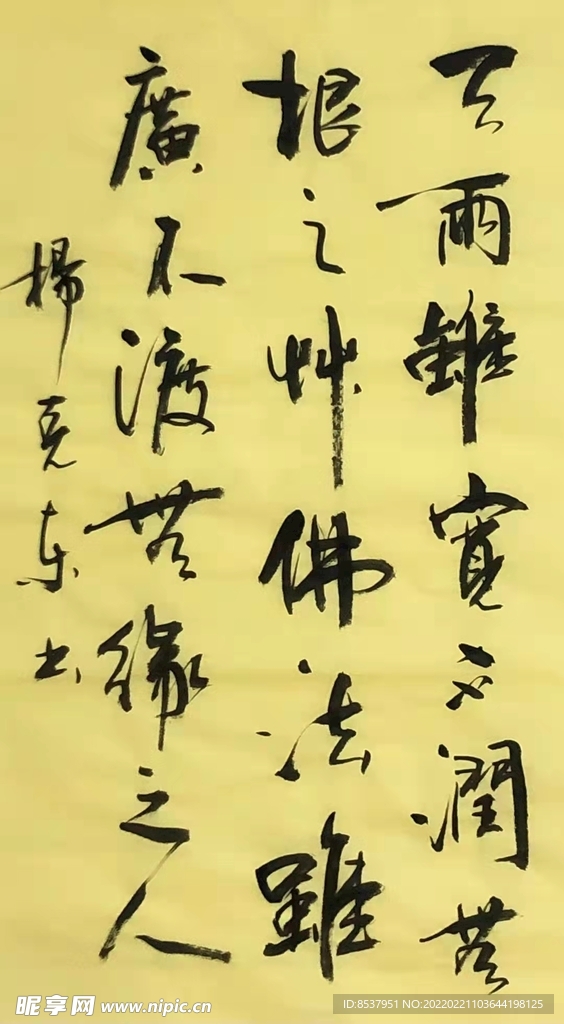 天雨雖寬不潤無
根之艸佛法雖
廣不渡無緣之人
楊克東書
昵享网 www.nipic.cn
ID:8537951 NO:20220221103644198125